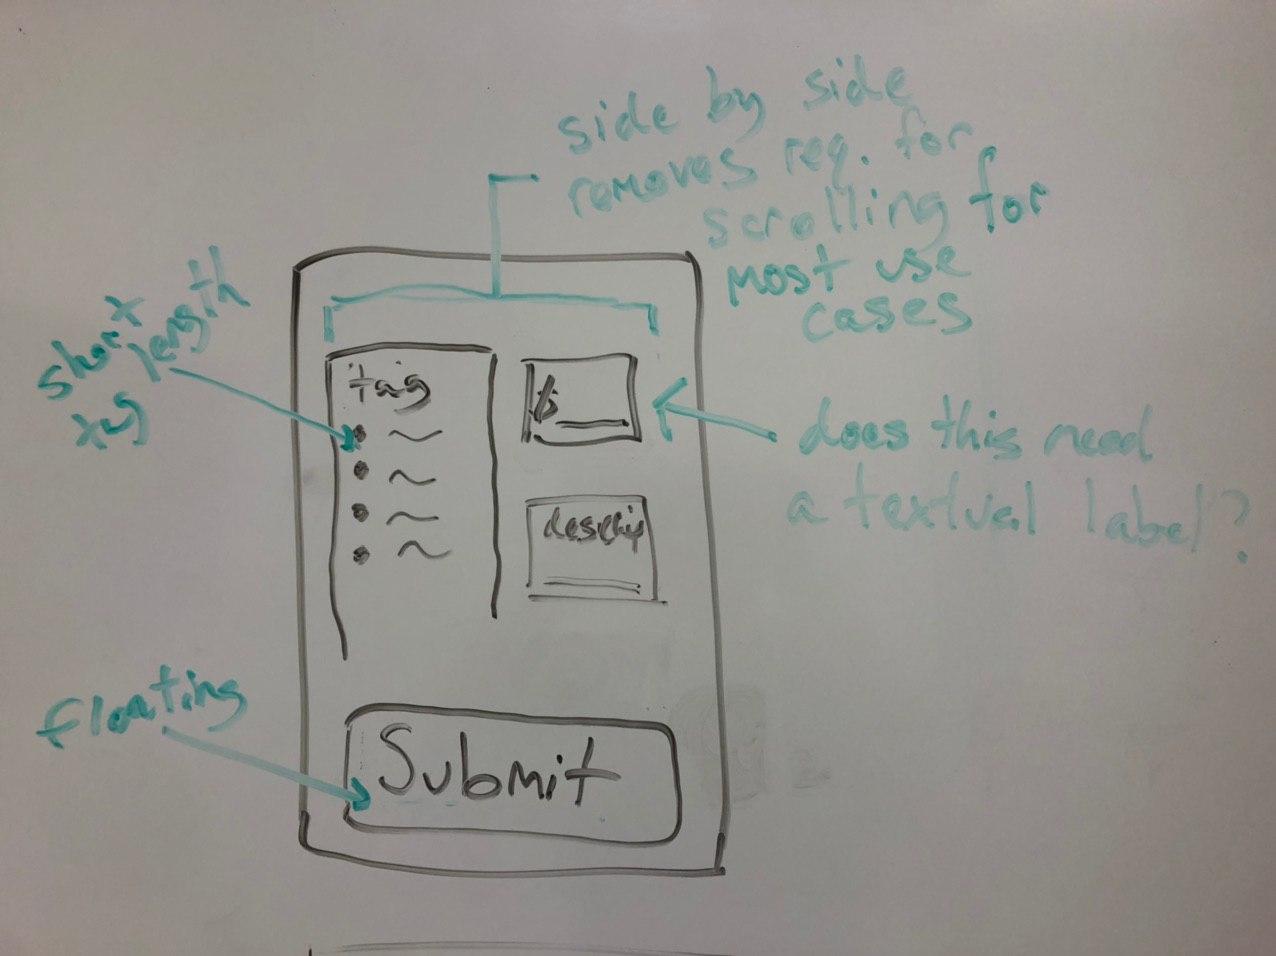 side by side
removes req. for
scrolling for
most use
cases
short
length
tag
tag
$
does this need
a textual label?
descrip
floating
Submit